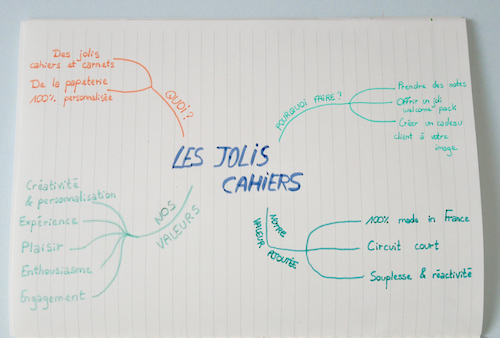 Des jolis
cahiers et carnets
De la papeterie
100% personnalisée
QUOI ?
POURQUOI FAIRE ?
Prendre des notes
Offrir un joli
welcome pack
Créer un cadeau
client à votre
image
LES JOLIS
CAHIERS
NOS
VALEURS
Créativité
& personnalisation
Expérience
Plaisir
Enthousiasme
Engagement
NOTRE
VALEUR AJOUTÉE
100% made in France
Circuit court
Souplesse & réactivité